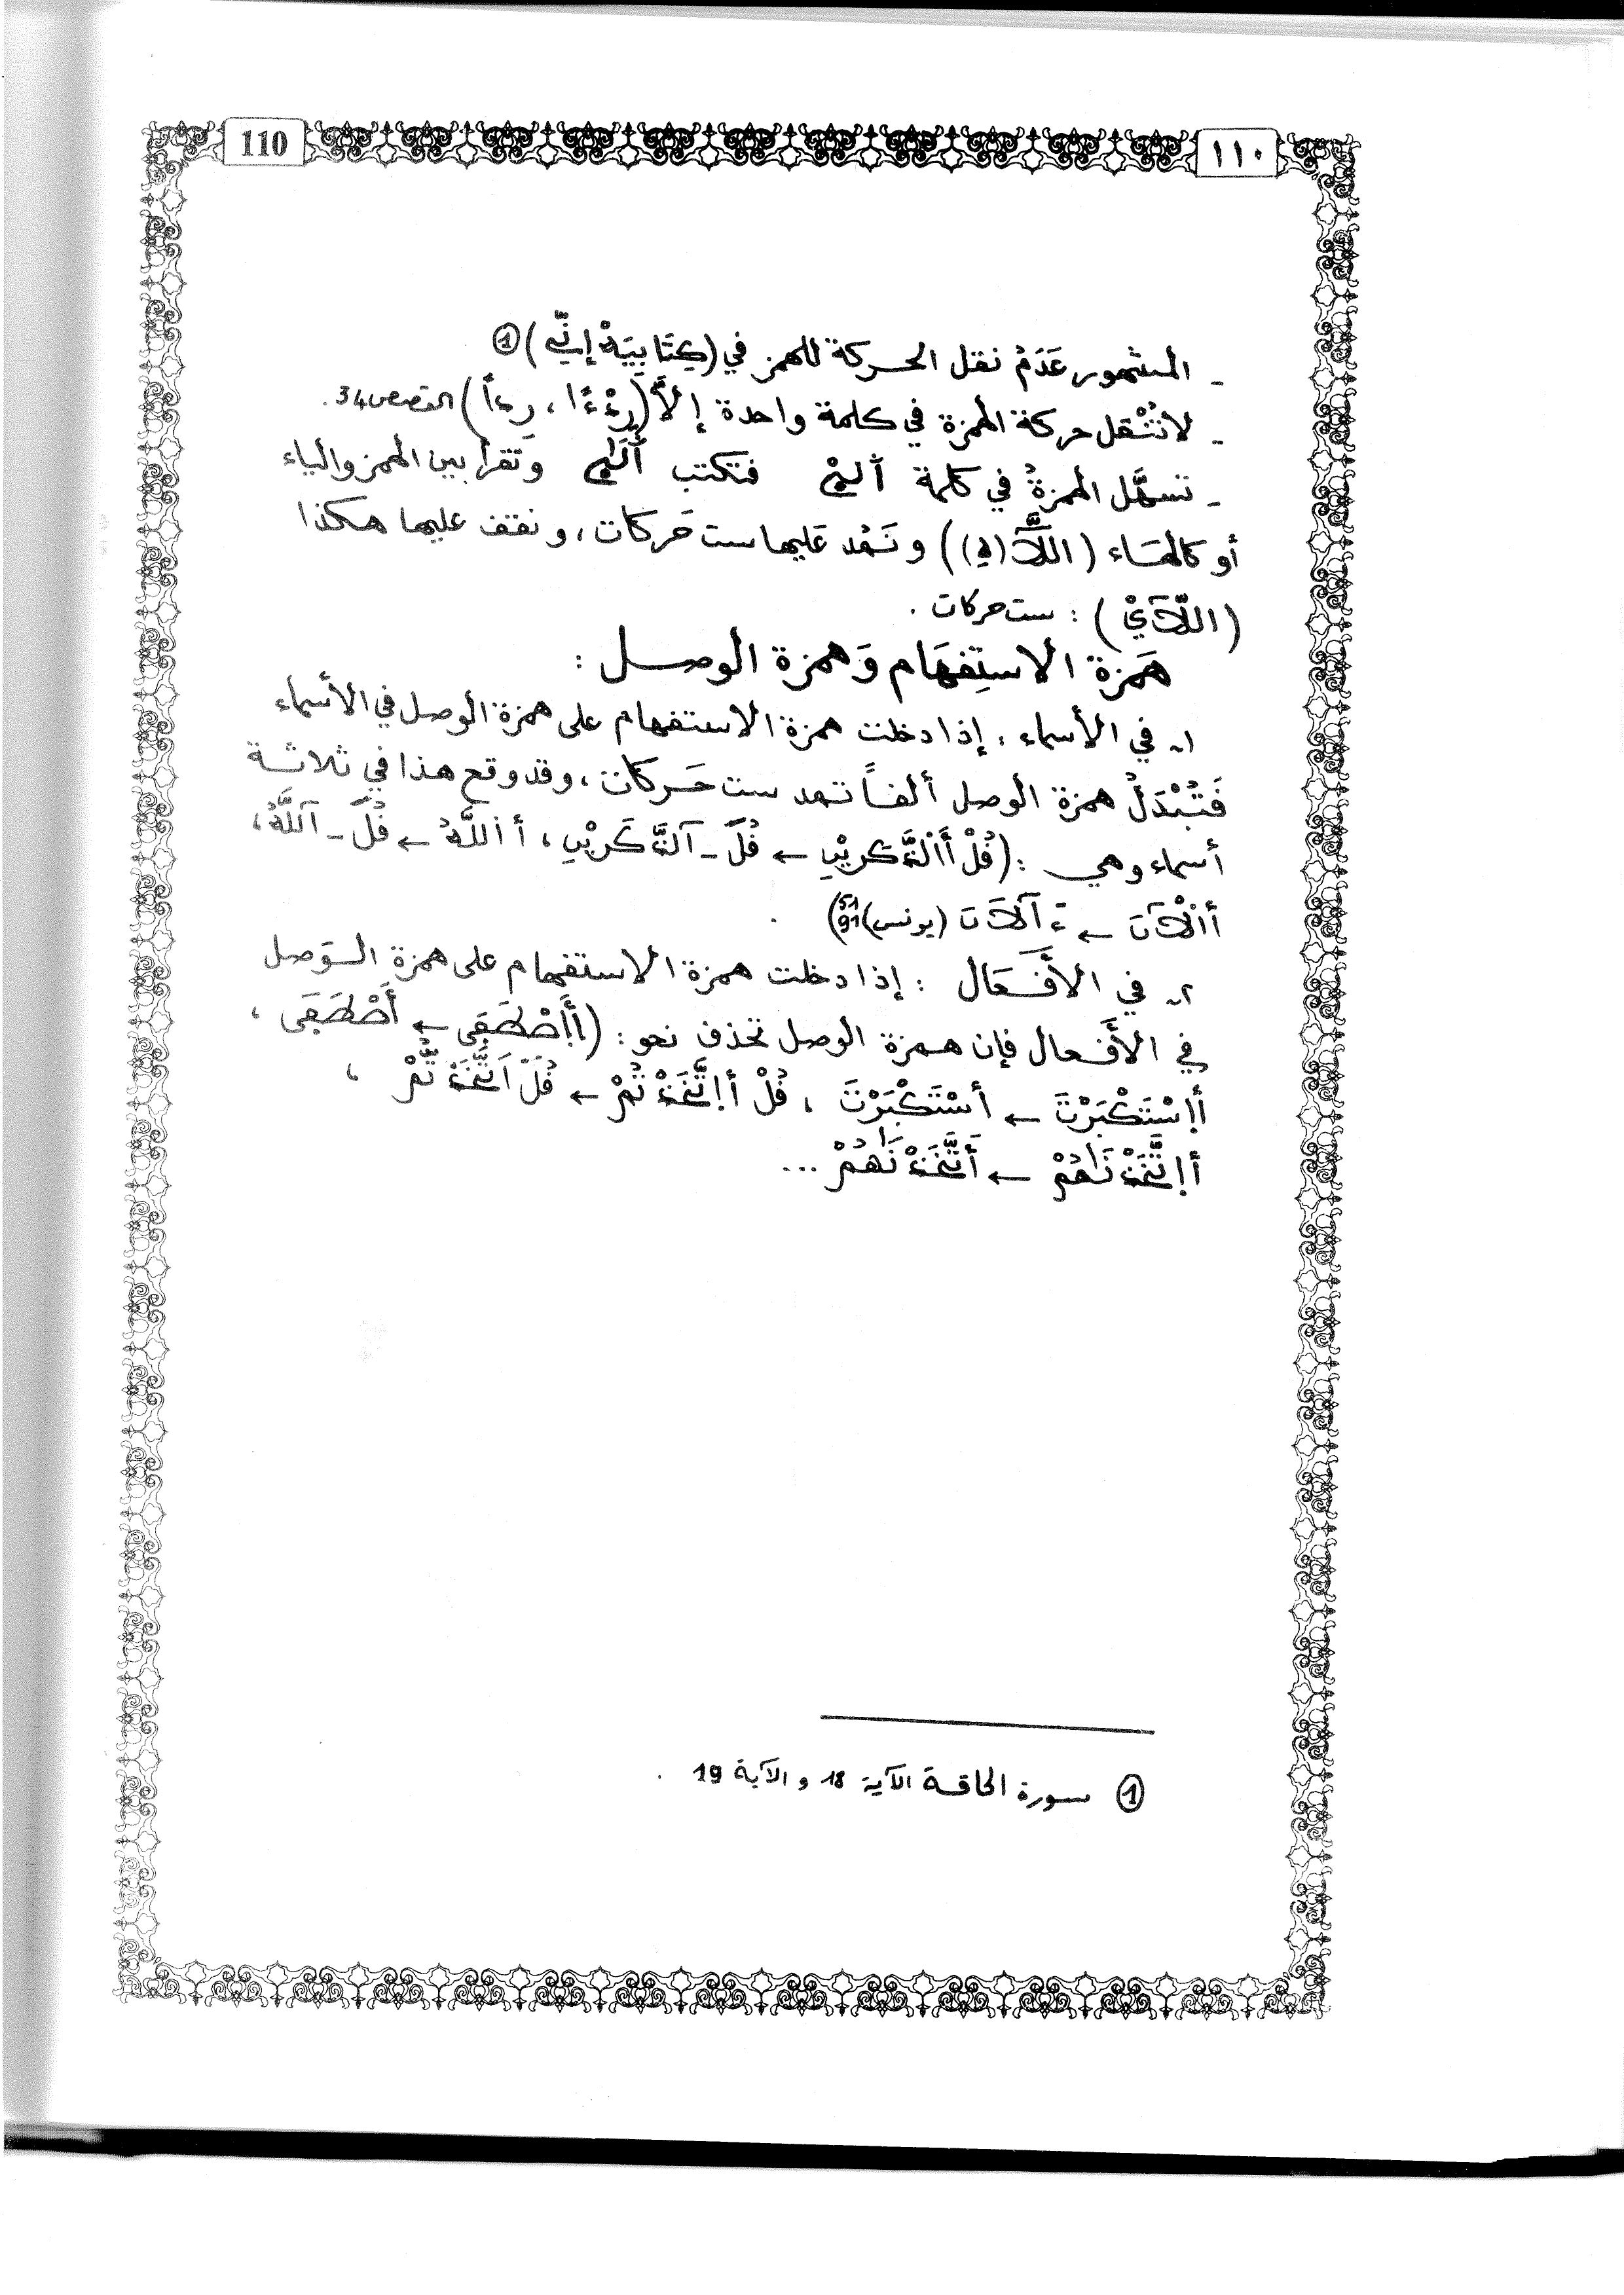 110
١١٠
- المشهور عَدَمُ نقل الحركة للهمز في (كِتَابِيَهْ إنِّي) ①
- لا تُنْقل حركة الهمزة في كلمة واحدة إلاَّ (رِدْءًا، رِداً) القصص 34.
- تسهَّل الهمزةُ في كلمة فتكتب وتقرأ بين الهمز والياء
أو كالهاء ونَمُد عَليها ست حَركات، ونقف عليها هكذا
(اللَّآيْ) : ست حركات .
هَمزة الاستِفهَام وَهمزة الوصل :
١- في الأسماء : إذا دخلت همزة الاستفهام على همزة الوصل في الأسماء
فَتُبْدَلُ همزة الوصل ألفاً تمد ست حَركات، وقد وقع هذا في ثلاثة
أسماء وهي : (قُلْ أَالذَّكَرَيْنِ ← قُلَ - آلذَّكَرَيْنِ، أاللَّهُ ← قُلَ - آللَّهُ،
أالْآنَ ← ءَآلَآنَ (يونس) 51 91)
٢- في الأَفعَال : إذا دخلت همزة الاستفهام على همزة الوَصل
في الأَفعال فإن همزة الوصل تحذف نحو : (أَاِصْطَفَى ← أَصْطَفَى ،
أَاِسْتَكْبَرْتَ ← أَسْتَكْبَرْتَ ، قُلْ أَاِتَّخَذْتُمْ ← قُلَ اَتَّخَذتُّمْ ،
أَاِتَّخَذْنَاهُمْ ← أَتَّخَذْنَاهُمْ ...
① سورة الحاقة الآية 18 و الآية 19 .